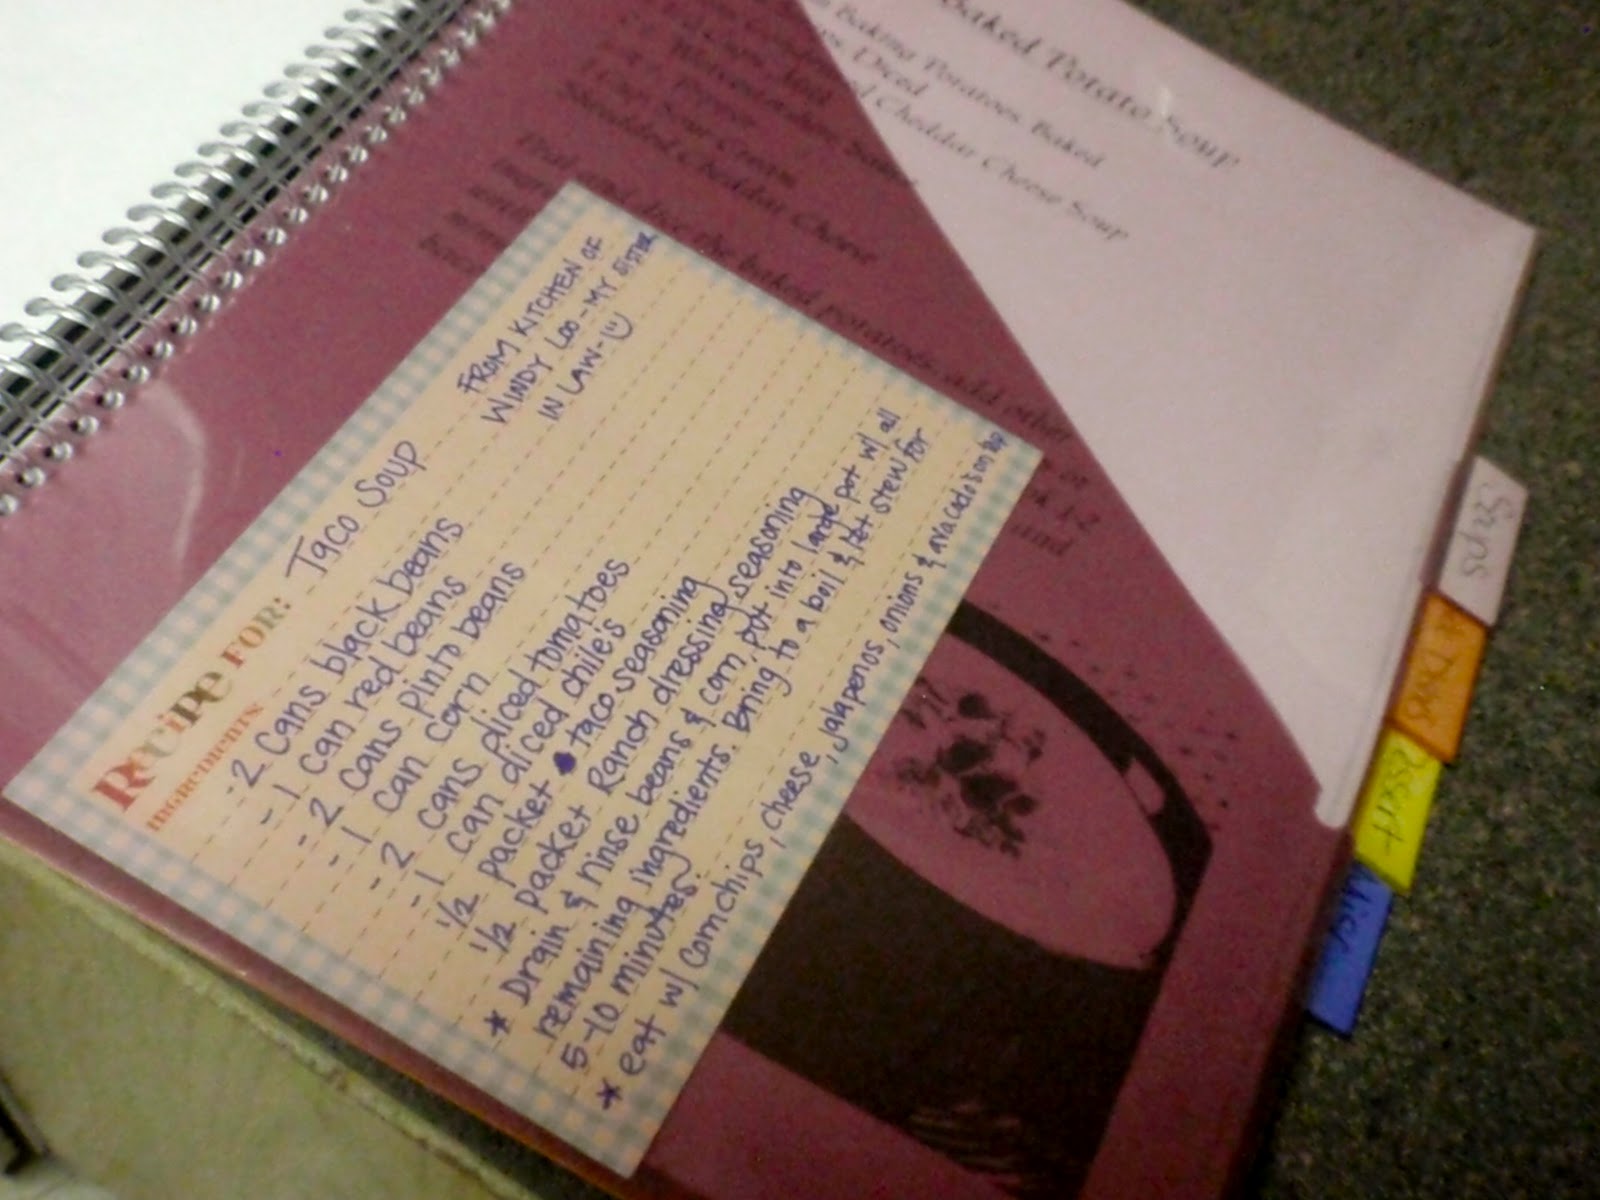 Recipe FOR: Taco Soup
INGREDIENTS
FROM KITCHEN OF
WINDY LOO - MY SISTER
IN LAW - 
- 2 cans black beans
- 1 can red beans
- 2 cans pinto beans
- 1 can corn
- 2 cans diced tomatoes
- 1 can diced chile's
1/2 packet taco seasoning
1/2 packet Ranch dressing seasoning
* Drain & rinse beans & corn, put into large pot w/ all
remaining ingredients. Bring to a boil & let stew for
5-10 minutes
* eat w/ cornchips, cheese, jalapenos, onions & avacado's on top
Baked Potato Soup
Baking Potatoes, Baked
Diced
Cheddar Cheese Soup
Sour Cream
Shredded Cheddar Cheese
the baked potatoes, add other
1-2
Soups